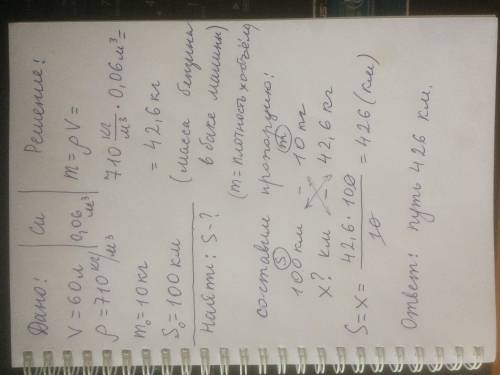 Дано: | Си | Решение:
V = 60 л | 0,06 м³ | m = ρV =
ρ = 710 кг/м³
710 кг/м³ · 0,06 м³ =
m₀ = 10 кг
= 42,6 кг
S₀ = 100 км
(масса бензина
в баке машины)
Найти: S - ?
(m = плотность х объём)
составим пропорцию:
(S) (m)
100 км – 10 кг
х? км – 42,6 кг
S = x = 42,6 · 100 / 10 = 426 (км)
Ответ: путь 426 км.